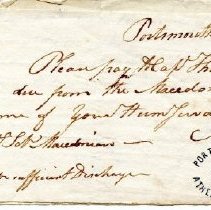 Portsmouth
Please pay to Capt Th
due from the Macedo
one of Your Hum Serva
Macedonian
sufficient Discharge
PORT
ATHE